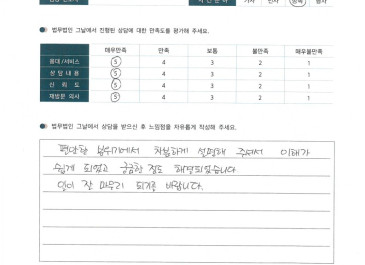 법무법인 그날에서 진행된 상담에 대한 만족도를 평가해 주세요.
매우만족 만족 보통 불만족 매우불만족
응대/서비스 5 4 3 2 1
상담내용 5 4 3 2 1
신뢰도 5 4 3 2 1
재방문 의사 5 4 3 2 1
법무법인 그날에서 상담을 받으신 후 느낌점을 자유롭게 작성해 주세요.
편안한 분위기에서 차분하게 설명해 주셔서 이해가
쉽게 되었고 궁금한 점도 해결되었습니다
일이 잘 마무리 되기를 바랍니다.